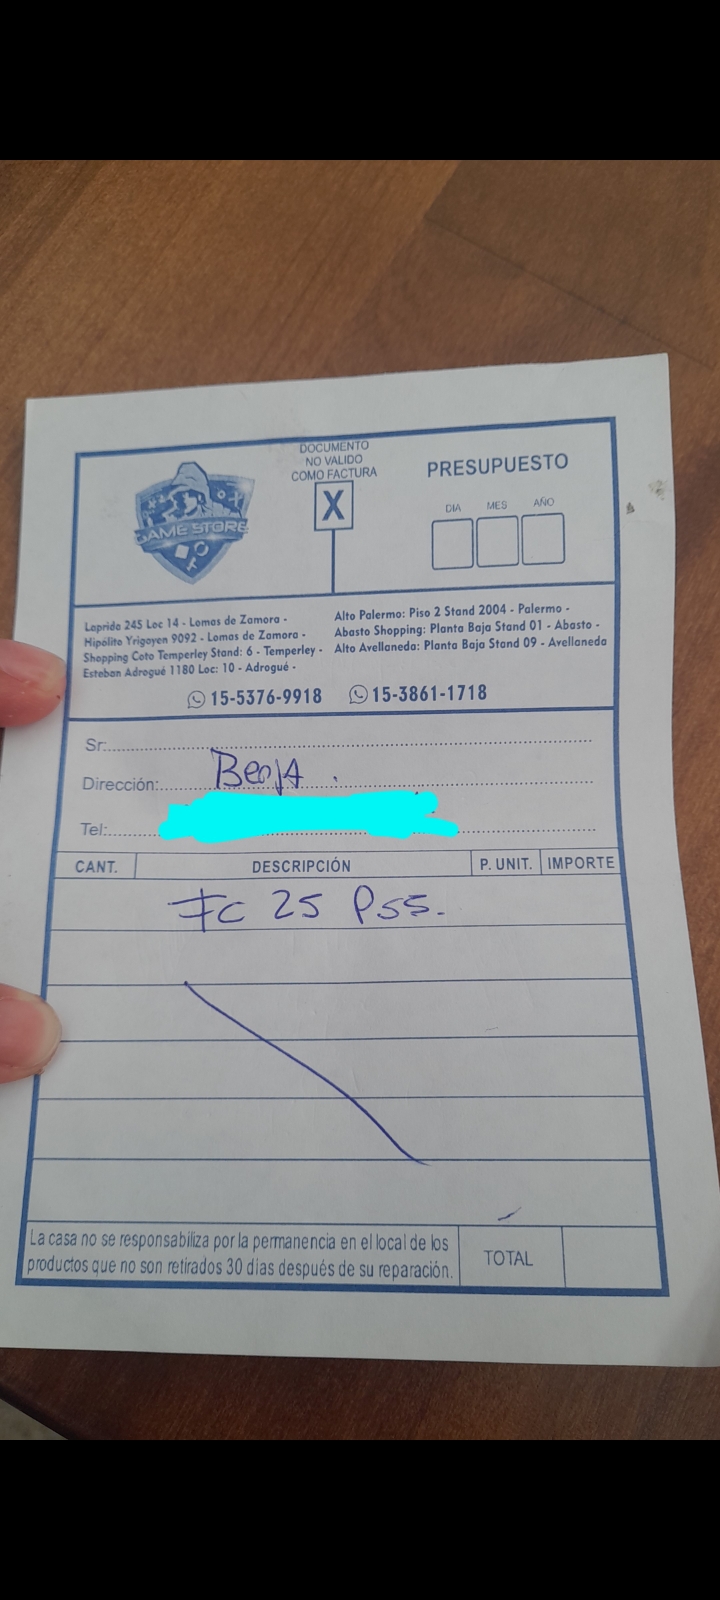 DOCUMENTO
NO VALIDO
COMO FACTURA
X
PRESUPUESTO
DIA MES AÑO
GAME STORE
Laprida 245 Loc 14 - Lomas de Zamora -
Hipólito Yrigoyen 9092 - Lomas de Zamora -
Shopping Coto Temperley Stand: 6 - Temperley -
Esteban Adrogué 1180 Loc: 10 - Adrogué -
Alto Palermo: Piso 2 Stand 2004 - Palermo -
Abasto Shopping: Planta Baja Stand 01 - Abasto -
Alto Avellaneda: Planta Baja Stand 09 - Avellaneda
15-5376-9918 15-3861-1718
Sr:
Dirección: Benja.
Tel:
CANT. DESCRIPCIÓN P. UNIT. IMPORTE
FC 25 PS5.
La casa no se responsabiliza por la permanencia en el local de los
productos que no son retirados 30 días después de su reparación.
TOTAL